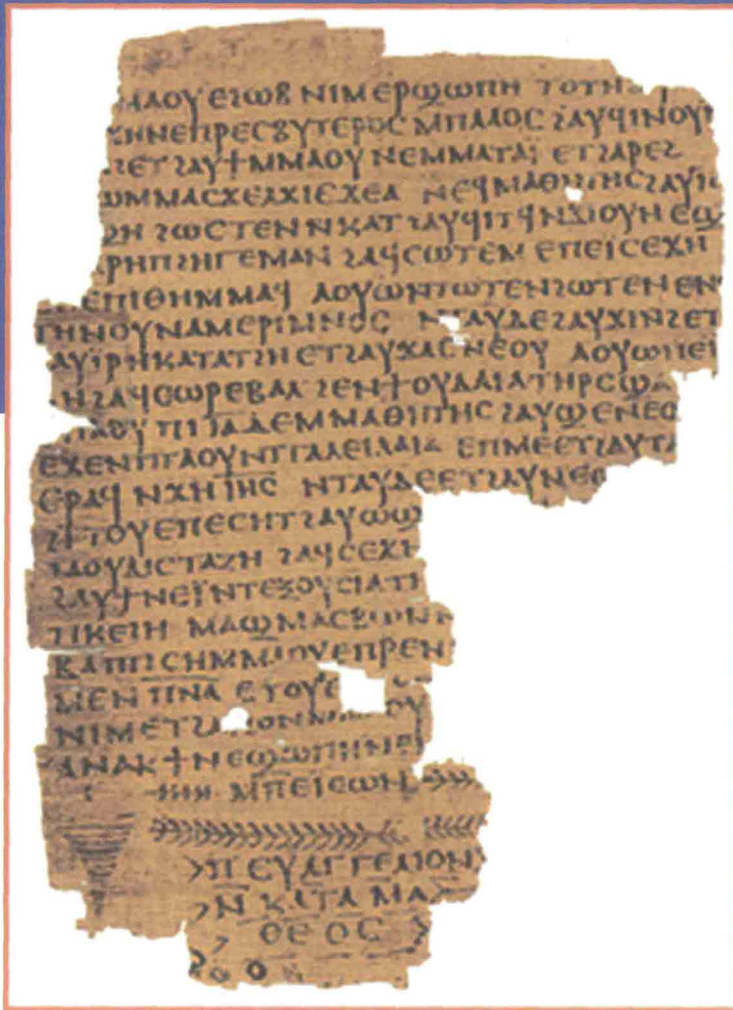 ⲙⲁⲟⲩ ⲉϩⲱⲃ ⲛⲓⲙ ⲉⲣϣⲱⲡⲏ ⲧⲟⲧⲏ
ϫⲏ ⲛⲉⲡⲣⲉⲥⲃⲩⲧⲉⲣⲟⲥ ⲙⲡⲗⲁⲟⲥ ϩⲁⲩϥⲓ ⲛⲟⲩ
ϩⲉⲧ ϩⲁⲩϯⲙⲙⲁⲟⲩ ⲛⲉⲙⲙⲁⲧⲁⲓ̈ ⲉⲧϩⲁⲣⲉϩ
ⲱⲙⲙⲁⲥ ϫⲉ ⲁϫⲓⲉ ϫⲉ ⲁ ⲛⲉϥⲙⲁⲑⲏⲧⲏⲥ ϩⲁⲩ
ϩⲏ ϩⲱⲥ ⲧⲉⲛⲛⲕⲁⲧ ϩⲁⲩϥⲓⲧϥ ⲛϫⲓⲟⲩⲏ ⲉϣ
ⲣⲏ ⲡϩⲏⲅⲉⲙⲁⲛ ϩⲁϥⲥⲱⲧⲉⲙ ⲉⲡⲉⲓ̈ⲥⲉϫⲏ
ⲉⲡⲓⲑⲏ ⲙⲙⲁϥ ⲁⲟⲩⲱ ⲛⲧⲱⲧⲉⲛ ϩⲱⲧⲉⲛ ⲉⲛ
ⲧⲏⲛⲟⲩ ⲛⲁⲙⲉⲣⲓⲙⲛⲟⲥ ⲛⲧⲁⲩ ⲇⲉ ϩⲁⲩϫⲓ ⲛϩⲉⲧ
ⲁⲩⲓ̈ⲣⲏ ⲕⲁⲧⲁ ⲧϩⲏ ⲉⲧϩⲁⲩϫⲁⲥ ⲛⲉⲟⲩ ⲁⲟⲩⲱ ⲡⲉⲓ
ϩⲁϥⲥⲱⲣ ⲉⲃⲁⲗ ϩⲉⲛ ϯⲟⲩⲇⲁⲓⲁ ⲧⲏⲣⲥ ϣⲁ
ⲡⲓⲓⲁ ⲇⲉ ⲙⲙⲁⲑⲏⲧⲏⲥ ϩⲁⲩϣⲉ ⲛⲉⲟ
ⲉϫⲉⲛ ⲡⲧⲁⲟⲩ ⲛⲧⲅⲁⲗⲉⲓⲗⲁⲓⲁ ⲉⲡⲙⲉ ⲉⲧϩⲁⲩⲧⲁ
ⲉⲣⲁϥ ⲛϫⲏ ⲓⲏⲥ ⲛⲧⲁⲩ ⲇⲉ ⲉⲧϩⲁⲩⲛⲉ
ⲉⲡⲉⲥⲏⲧ ϩⲁⲩⲱϣ
ⲇⲓⲥⲧⲁⲍⲏ ϩⲁϥⲥⲉϫⲏ
ϩⲁⲩϯ ⲛⲉⲓ̈ ⲛⲧⲉⲝⲟⲩⲥⲓⲁ ⲧⲓ
ϩⲓ ⲡⲕⲉϩⲏ ⲙⲁϣ ⲙⲁⲥⲃⲱ ⲛ
ⲃⲁⲡⲧⲓⲥⲏ ⲙⲙⲁⲟⲩ ⲉⲡⲣⲉⲛ
ⲙⲉⲛ ⲡⲛⲁ ⲉⲧⲟⲩ
ⲛⲓⲙ ⲉⲧϩⲁ
ⲁⲛⲁⲕ ϯⲛⲉϣⲱⲡⲏ ⲛⲉ
ⲙⲡⲉⲓⲉⲱⲛ
ⲡⲉⲩⲁⲅⲅⲉⲗⲓⲟⲛ
ⲛⲕⲁⲧⲁ ⲙⲁ
ⲑⲉⲟⲥ